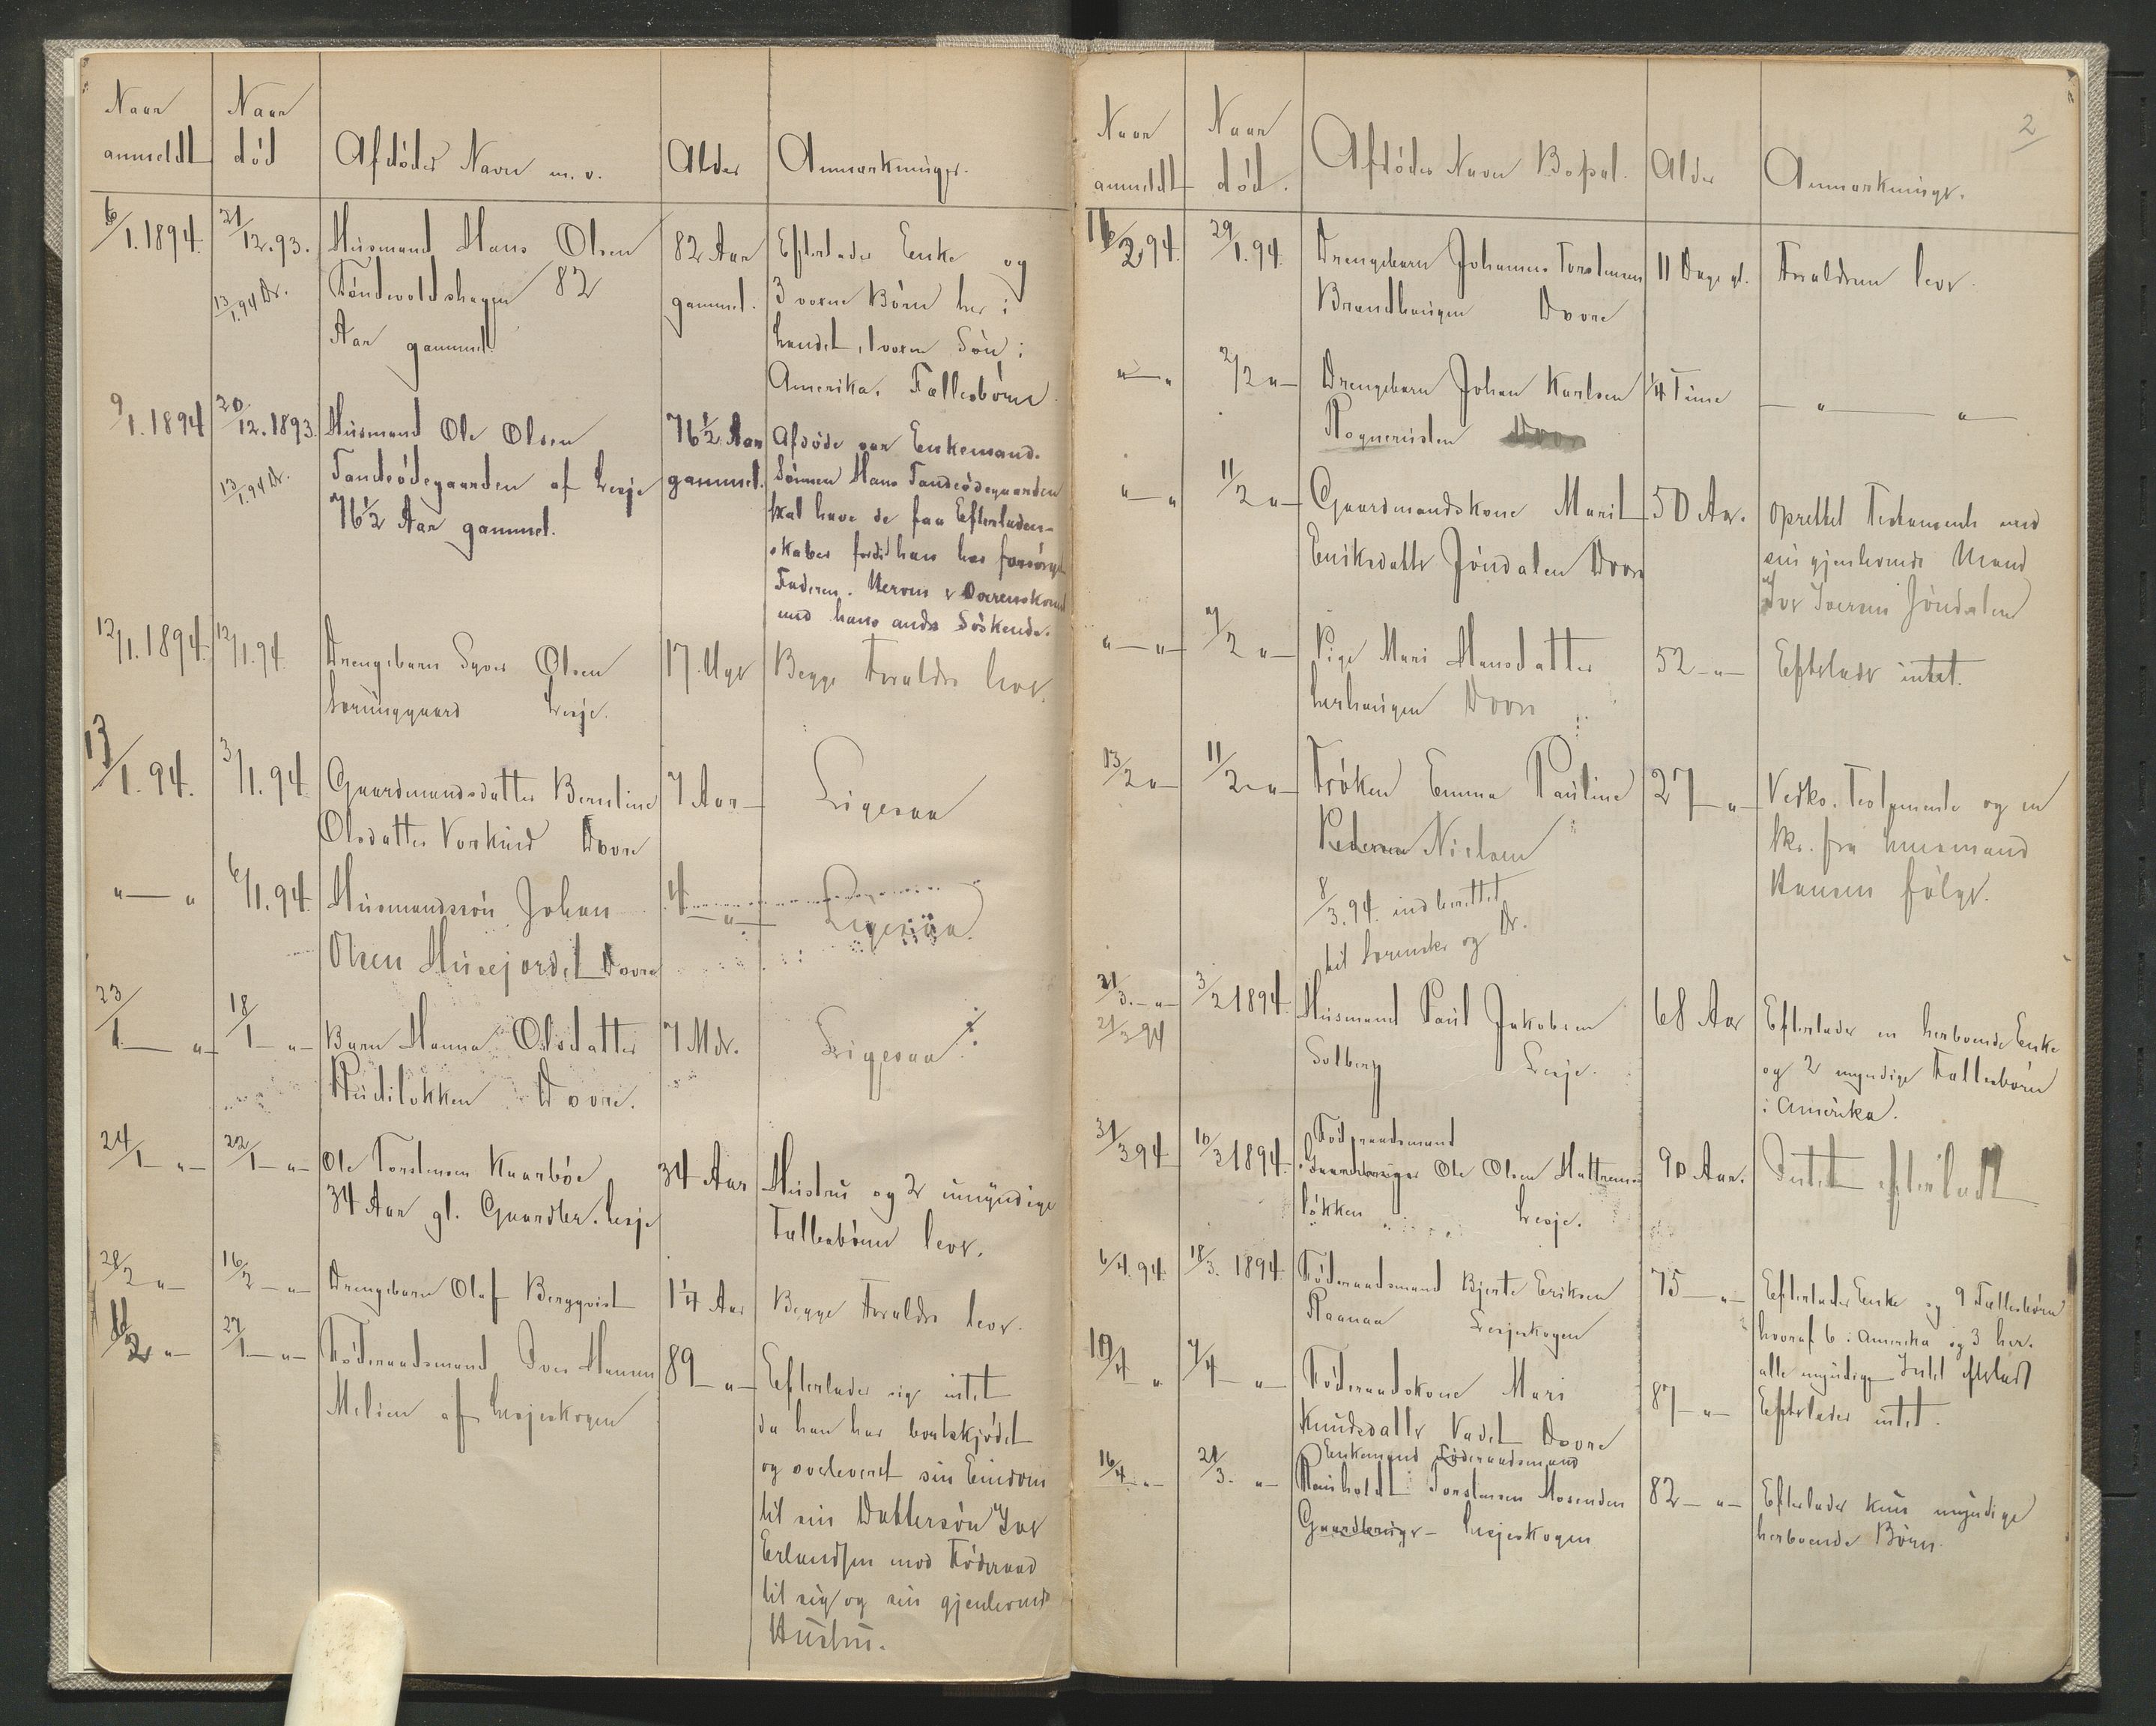 Naar
anmeldt
Naar
død
Afdødes Navn m. v.
Alder
Anmærkninger.
6/1. 1894.
21/12. 93.
13/1. 94 Dr.
Husmand Hans Olsen
Tøndevoldshagen 82
Aar gammel.
82 Aar
gammel.
Efterlader Enke og
3 voxne Børn her i
landet, 1 voxen Søn i
Amerika. Fællesbørn
9/1. 1894
20/12. 1893.
13/1. 94 Dr.
Husmand Ole Olsen
Tandeødegaarden af Lesje
76½ Aar gammel.
76½ Aar
gammel.
Afdøde var Enkemand.
Sønnen Hans Tandeødegaarden
skal have de faa Efterladen-
skaber fordi han har forsørget
Faderen. Herom er Overenskomst
med hans andre Søskende.
12/1. 1894.
12/1. 94.
Drengebarn Syver Olsen
Lesje.
17 Uger
Begge Forældre lever.
13/1. 94.
3/1. 94.
Gaardmandsdatter Berntine
Olsdatter Vorkind Dovre
7 Aar
Ligesaa
" — "
6/1. 94.
Husmandssøn Johan
Olsen Husejordet Dovre
4 — " —
Ligesaa
23/1 — " —
18/1 — " —
Barn Hanna Olsdatter
Rudiløkken Dovre.
7 Mdr.
Ligesaa
24/1 — " —
22/1 — " —
Ole Torstensen Kaarbøe
34 Aar gl. Gaardbr. Lesje
34 Aar
Hustru og 2 umyndige
Fællesbørn lever.
21/2 " —
16/2 — " —
Drengebarn Olaf Bergqvist
1¼ Aar
Begge Forældre lever.
2 " —
27/1 — " —
Føderaadsmand Iver Hansen
Melien af Lesjeskogen
89 — " —
Efterlader sig intet
da han har bortskjødet
og overleveret sin Eiendom
til sin Dattersøn Iver
Erlandsen mod Føderaad
til sig og sin gjenlevende
Hustru.
2
Naar
anmeldt
Naar
død.
Afdødes Navn Bopæl.
Alder
Anmærkninger.
16/2. 94.
29/1. 94.
Drengebarn Johannes Torstensen
Brandhaugen Dovre
11 Dage gl.
Forældrene lever.
" — "
2/2 " —
Drengebarn Johan Karlsen
Rognerusten Dovre
¼ Time
— " — " —
" — "
11/2 " —
Gaardmandskone Marit
Eriksdatter Jøndalen Dovre
50 Aar.
oprettet Testamente med
sin gjenlevende Mand
Iver Iversen Jøndalen
" — " —
7/2 " —
Pige Mari Hansdatter
Dovre
52 — " —
Efterlader intet.
13/2 " —
11/2 — " —
Frøken Emma Pauline
Pedersen Nielsen
8/3. 94. indberettet
til Sorensk. og Dr.
27 — " —
Vedk. Testamente og en
Skr. fra
Hansen følger.
21/3. — " —
21/3 94
3/2 1894.
Husmand Paul Jakobsen
Solberg Lesje.
68 Aar
Efterlader en herboende Enke
og 2 myndige Fællesbørn
i Amerika.
31/3 94
10/3 1894.
Føderaadsmand
Gaardbruger Ole Olsen Hattrem-
løkken Lesje.
90 Aar.
Intet efterladt
6/4. 94.
18/3. 1894.
Føderaadsmand Bjerte Eriksen
Raanaa Lesjeskogen
75 — " —
Efterlader Enke og 9 Fællesbørn
hvoraf 6 i Amerika og 3 her.
alle myndige Intet efterladt
10/4 "
7/4 — " —
Føderaadskone Mari
Knudsdatter Vadet Dovre
87 — " —
Efterlader intet.
16/4 — " —
21/3. " —
Enkemand Føderaadsmand
Reinholdt Torstensen Mosenden
Gaardbruger — Lesjeskogen
82 — " —
Efterlader kun myndige
herboende Børn.